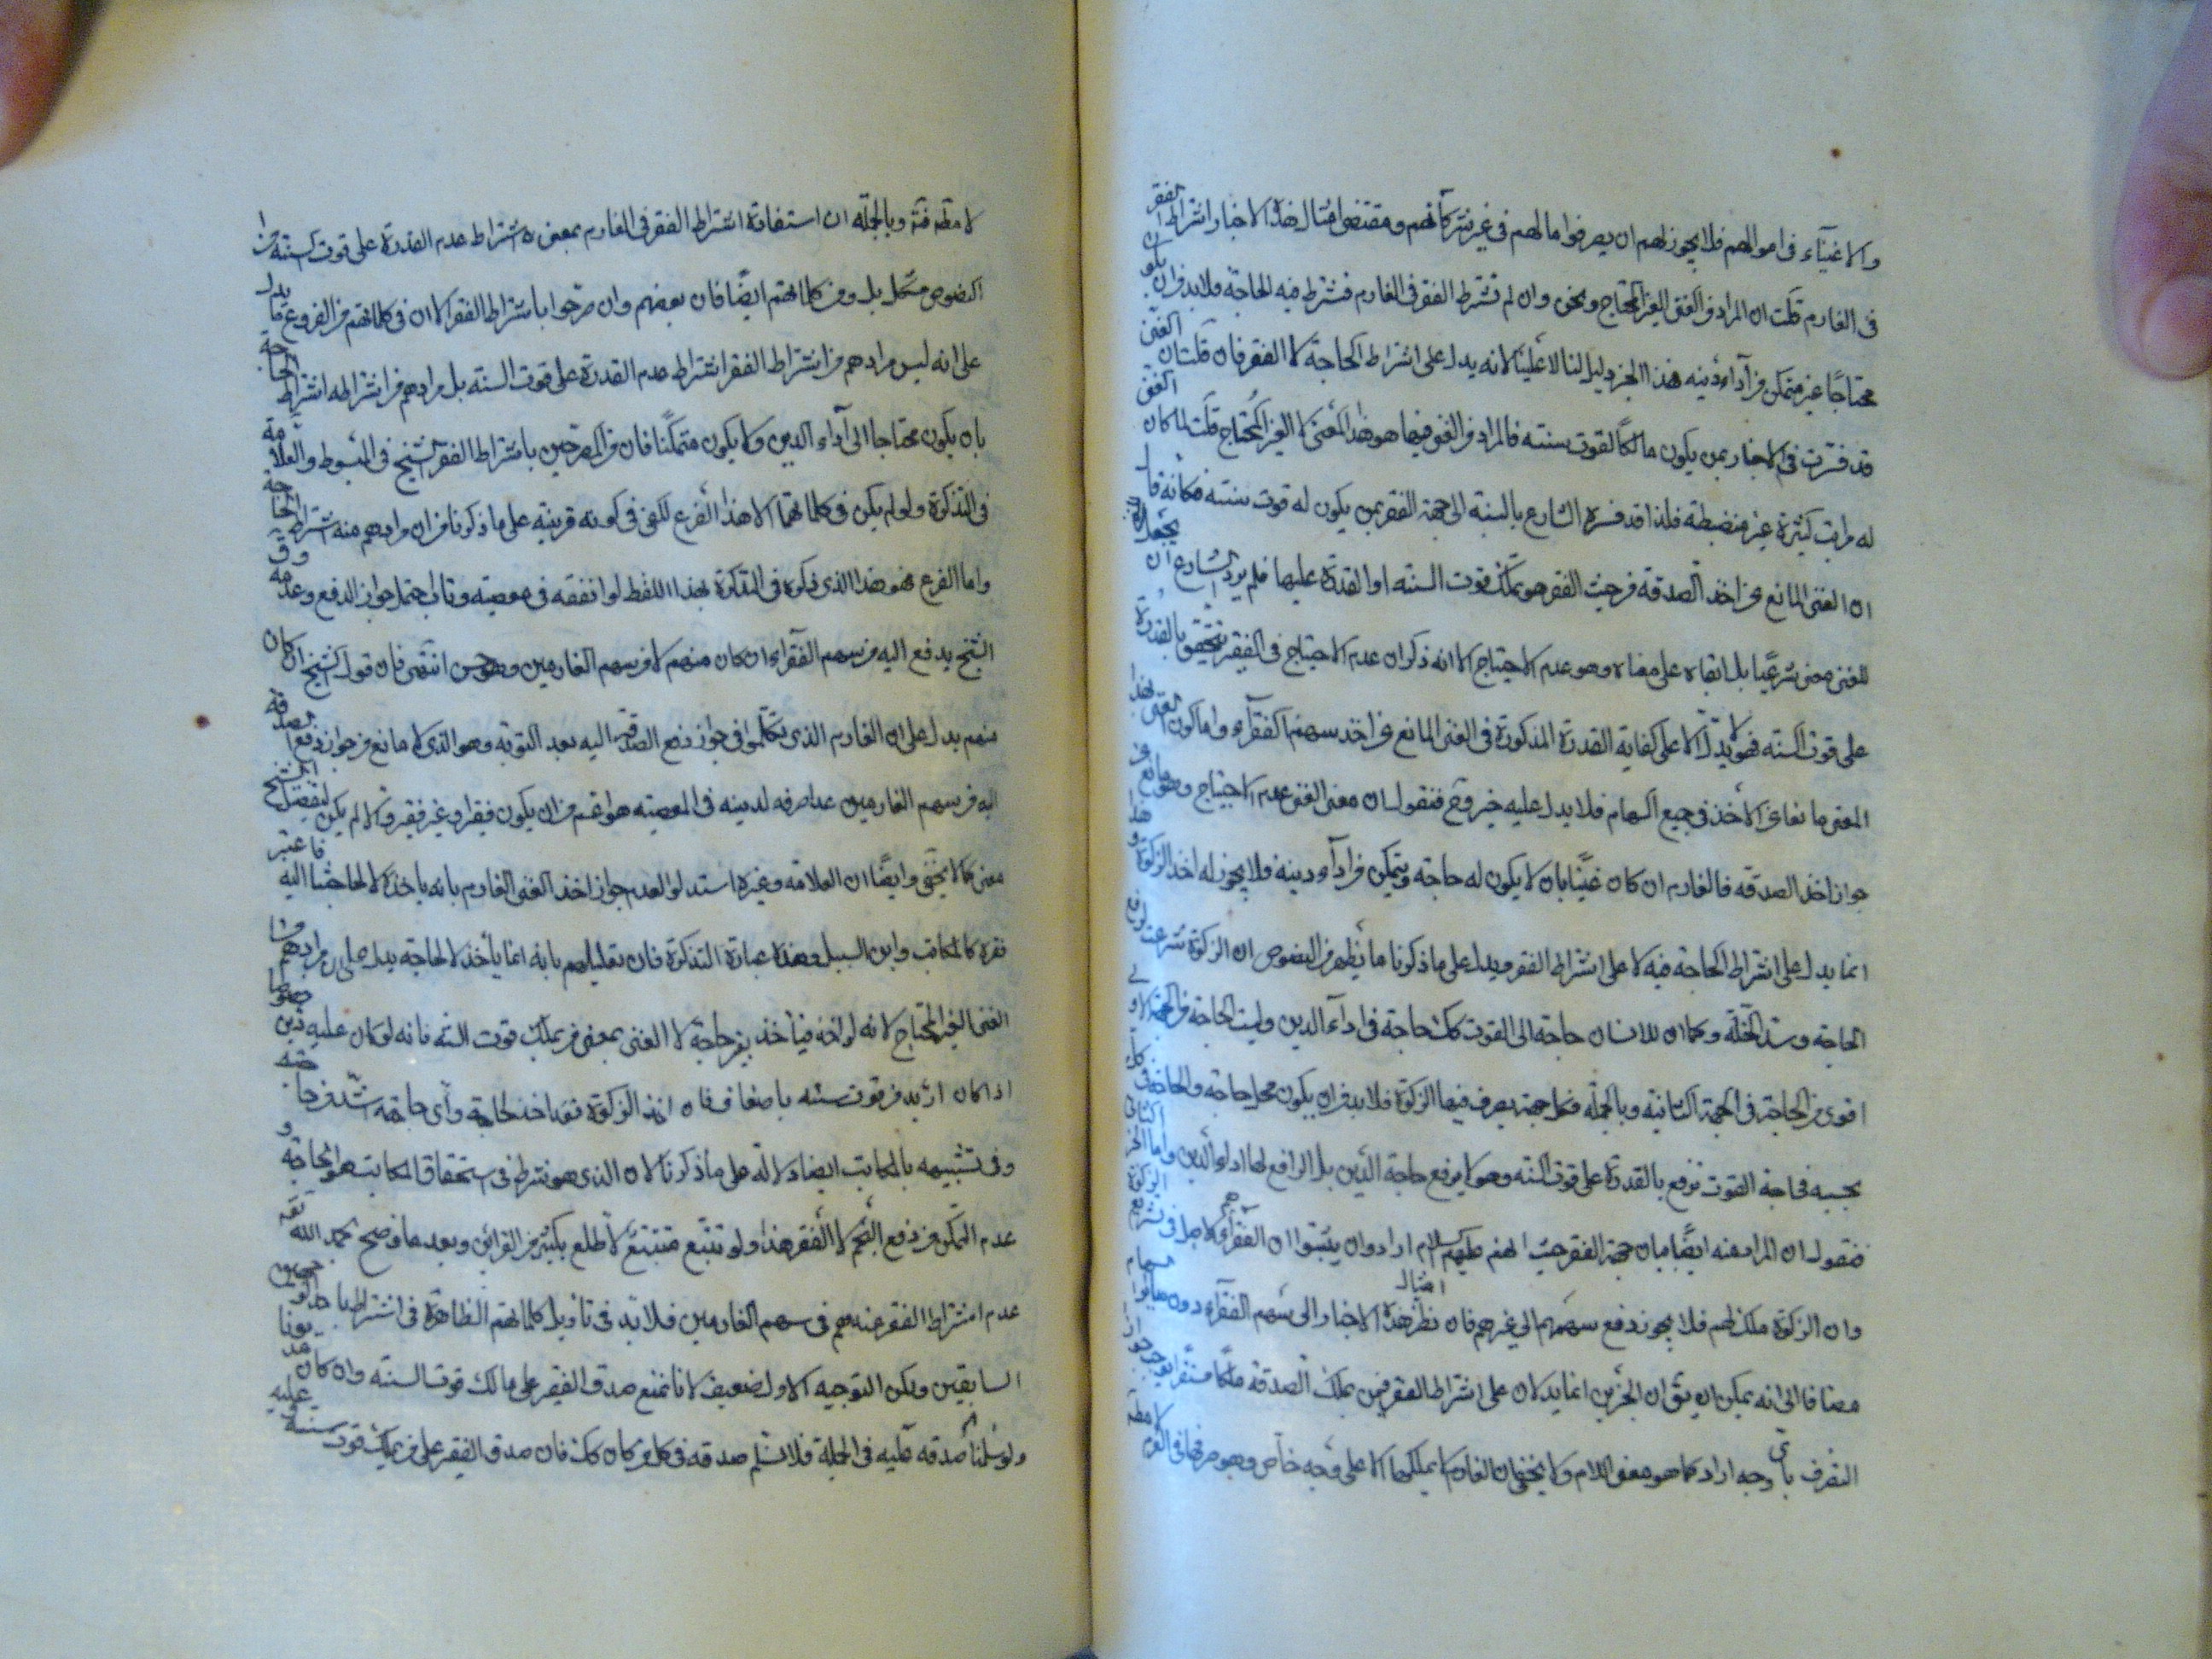 والاغنيآء فى اموالهم فلا يجوز لهم ان يصرفوا مالهم فى غير شركائهم ومقتضى امثال هذه الاخبار اشتراط الفقر
فى الغارم قلت ان المراد من الغنى الغير المحتاج ونحن وان لم نشترط الفقر فى الغارم فنشترط فيه الحاجة فلابد من ان يكون
محتاجًا غير متمكن من آداء دينه فهذا الخبر دليل لنا لا علينا لانه يدل على اشتراط الحاجة لا الفقر فان قلت ان الغنى
قد فسّرت فى الاخبار بمن يكون مالكًا لقوت سنته فالمراد من الغنى فيها هو هذا المعنى لا الغير المحتاج قلت لما كان الغنى
له مراتب كثيرة غير منضبطة فلذا قد فسره الشارع بالنسبة الى جهة الفقر بمن يكون له قوت سنته فكانه قال
ان الغنى المانع عن اخذ الصدقة من حيث الفقر هو تملّك قوت السنة او القدرة عليها فلم يرد الشارع ان يجعل
للغنى معنى شرعيًا بل ابقاه على معناه وهو عدم الاحتياج الا انه ذكر ان عدم الاحتياج فى الفقير يتحقق بالقدرة
على قوت السنة فهو لا يدلّ الا على كفاية القدرة المذكورة فى الغنى المانع عن اخذ سهم الفقرآء واما كون الغنى بهذا
المعنى مانعا عن الأخذ فى جميع السهام فلا يدل عليه خبر وح فنقول ان معنى الغنى عدم الاحتياج وهو مانع عن
جواز اخذ الصدقة فالغارم ان كان غنيًّا بان لا يكون له حاجة ويتمكن من ادآء دينه فلا يجوز له اخذ الزكوة وهذا
انما يدل على اشتراط الحاجة فيه لا على اشتراط الفقر ويدل على ما ذكرنا ما يظهر من النصوص ان الزكوة شرعت لرفع
الحاجة وسدّ الخلّة وكما ان للانسان حاجة الى القوت كك حاجة فى ادآء الدين وليست الحاجة فى الجهة الاولى
اقوى من الحاجة فى الجهة الثانية وبالجملة فكل جهة يصرف فيها الزكوة فلابد من ان يكون محل حاجة والحاجة فى كل
بحسبه فحاجة القوت ترفع بالقدرة على قوت السنة وهو لا يرفع حاجة الدين بل الرافع لها اداء الدين واما الخبر الثانى
فنقول ان المراد منه ايضًا بيان جهة الفقر حيث انهم عليهم السلام ارادوا ان يثبتوا ان الفقراء هم الاصل فى تشريع الزكوة
وان الزكوة ملك لهم فلا يجوز دفع سهمهم الى غيرهم فان نظر امثال هذه الاخبار الى سهم الفقرآء دون سايرا سهام
مضافا الى انه يمكن ان يقٓ ان الخبرين انما يدلان على اشتراط الفقر فيمن يملك الصدقة ملكًا مستقرا يوجب جواز
التصرف باى وجه اراد كما هو معنى اللام ولا يخفى ان الغارم لا يملكها الا على وجه خاص وهو صرفها فى الغرم لا مطم
لا مطم فتم وبالجملة ان استفادة اشتراط الفقر فى الغارم بمعنى اشتراط عدم القدرة على قوت السنة من
النصوص مشكل بل ومن كلماتهم ايضًا فان بعضهم وان صرّحوا باشتراط الفقر الا ان فى كلماتهم من الفروع ما يدل
على انه ليس مرادهم من اشتراط الفقر اشتراط عدم القدرة على قوت السنة بل مرادهم من اشتراطه اشتراط الحاجة
بان يكون محتاجا الى آداء الدين ولا يكون متمكنًا فان من المصرحين باشتراط الفقر الشيخ فى المبسوط والعلامة
فى التذكرة ولو لم يكن فى كلماتهما الا هذا الفرع لكفى فى كونه قرينة على ما ذكرنا من ان مرادهم منه اشتراط الحاجة
واما الفرع فهو هذا الذى ذكره فى التذكرة بهذا اللفظ لو انفقه فى معصية وتاب احتمل جواز الدفع وعدمه وق
الشيخ يدفع اليه من سهم الفقرآء ان كان منهم لا من سهم الغارمين وهو حسن انتهى فان قول الشيخ ان كان
منهم يدل على ان الغارم الذى تكلموا فى جواز دفع الصدقة اليه بعد التوبة وهو الذى لا مانع من جواز دفع الصدقة
اليه من سهم الغارمين عدا صرفه لدينه فى المعصية هو اعم من ان يكون فقيرا وغير فقير والا لم يكن لتفصيل الشيخ
معنى كما لا يخفى وايضًا ان العلامة وغيره استدلوا لعدم جواز اخذ الغنى الغارم بانه ياخذ لا لحاجتنا اليه فاعتبر
فقره كالمكاتب وابن السبيل وهذه عبارة التذكرة فان تعليلهم بانه انما يأخذ لا لحاجة يدل على ان مرادهم من
الغنى الغير المحتاج لانه لو اخذ فيأخذ بغير حاجة لا الغنى بمعنى من يملك قوت السنة فانه لو كان عليه دين خصوصا
اذا كان ازيد من قوت سنته باضعاف فان اخذ الزكوة فقد اخذ لحاجة وأى حاجة اشد من حاجته
وفى تشبيهه بالمكاتب ايضا دلالة على ما ذكرنا لان الذى هو شرط فى استحقاق المكاتب هو الحاجة و
عدم التمكن من دفع النجم لا الفقر هذا ولو تتبّع متتبّع لاطلع بكثير من القرائن وبعد ما وضح بحمد الله تعه
عدم اشتراط الفقر عنهم فى سهم الغارمين فلابّد فى تأويل كلماتهم الظاهرة فى اشتراطه باحد الوجهين
السابقين ولكن التوجيه الاول ضعيف لانا نمنع صدق الفقير على مالك قوت السنة وان كان مديونا
ولو سلمنا صدقه عليه فى الجملة فلا نسلم صدقه فى كل من كان كك فان صدق الفقير على من يملك قوت سنته وعليه